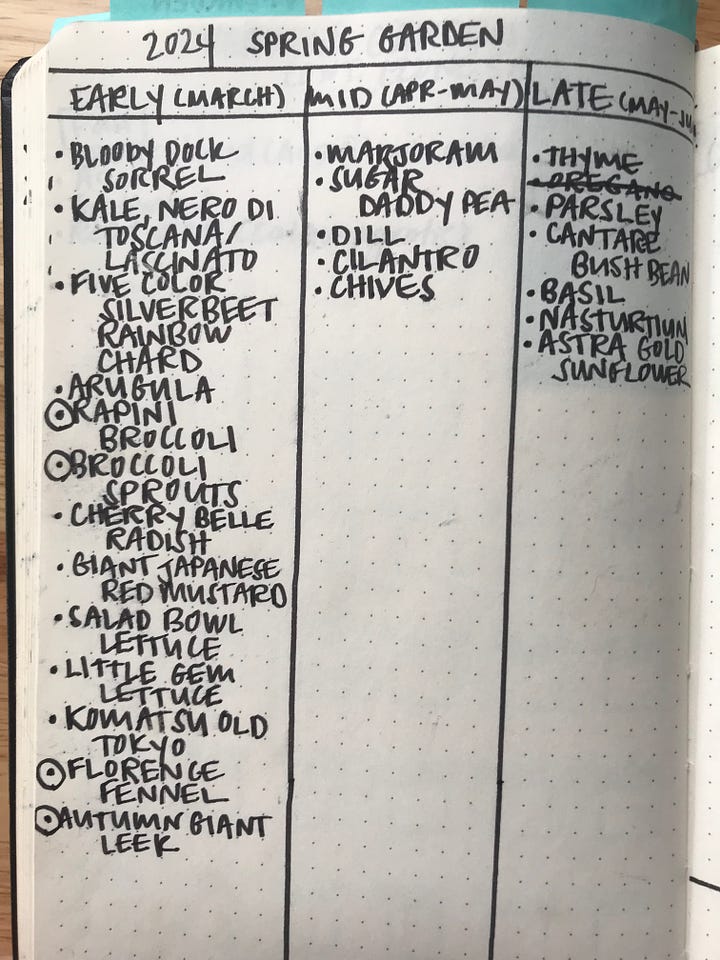 2024 SPRING GARDEN
EARLY (MARCH)
• BLOODY DOCK
SORREL
• KALE, NERO DI
TOSCANA/
LASCINATO
• FIVE COLOR
SILVERBEET
RAINBOW
CHARD
• ARUGULA
• RAPINI
BROCCOLI
• BROCCOLI
SPROUTS
• CHERRY BELLE
RADISH
• GIANT JAPANESE
RED MUSTARD
• SALAD BOWL
LETTUCE
• LITTLE GEM
LETTUCE
• KOMATSU OLD
TOKYO
• FLORENCE
FENNEL
• AUTUMN GIANT
LEEK
MID (APR-MAY)
• MARJORAM
• SUGAR
DADDY PEA
• DILL
• CILANTRO
• CHIVES
LATE (MAY-JU
• THYME
• OREGANO
• PARSLEY
• CANTARE
BUSH BEAN
• BASIL
• NASTURTIUM
• ASTRA GOLD
SUNFLOWER